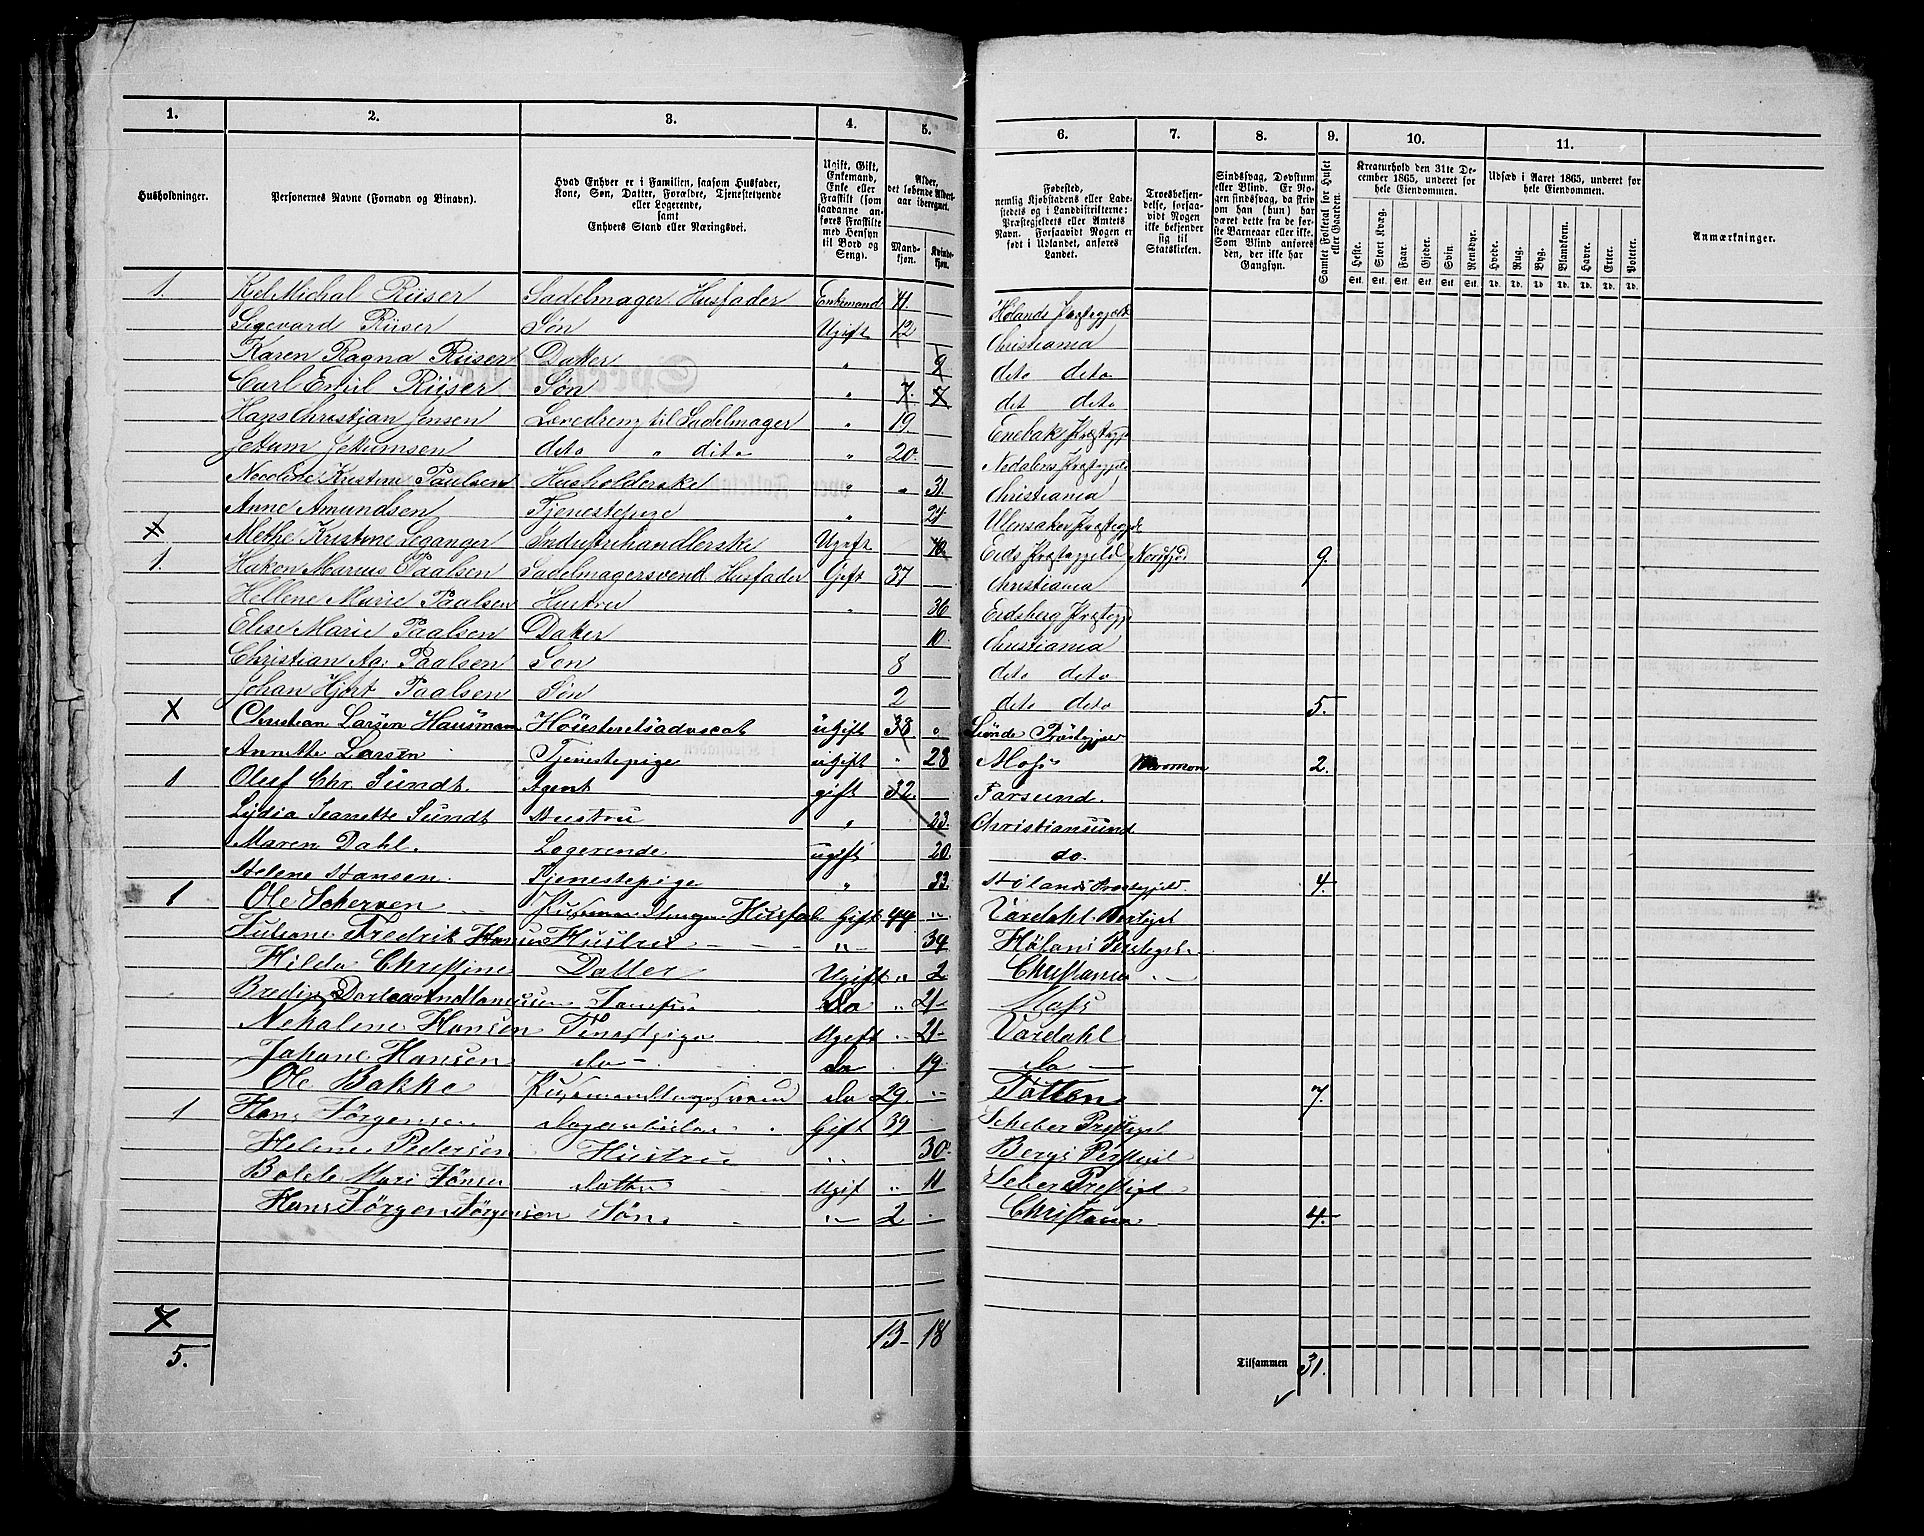 1. 2. 3. 4. 5. 6. 7. 8. 9. 10. 11.
Husholdninger.
Personernes Navne (Fornavn og Binavn).
Hvad Enhver er i Familien, saasom Husfader, Kone, Søn, Datter, Forældre, Tjenestetyende eller Logerende, samt Enhvers Stand eller Næringsvei.
Ugift, Gift, Enkemand, Enke eller Fraskilt (som saadanne anføres Fraskilte med Hensyn til Bord og Seng).
Alder, det løbende Alders-aar iberegnet.
Mand-kjøn. Kvinde-kjøn.
Fødested, nemlig Kjøbstadens eller Ladestedets og i Landdistrikterne: Præstegjeldets eller Amtets Navn. Forsaavidt Nogen er født i Udlandet, anføres Landet.
Troesbekjendelse, forsaavidt Nogen ikke bekjender sig til Statskirken.
Sindssvag, Døvstum eller Blind. Er Nogen sindssvag, da skrives om han (hun) har været dette fra de første Barneaar eller ikke. Som Blind anføres den, der ikke har Gangsyn.
Samlet Folketal for Huset eller Gaarden.
Kreaturhold den 31te December 1865, underet for hele Eiendommen.
Heste. Stort Kvæg. Faar. Gjeder. Svin. Rensdyr.
Stk. Stk. Stk. Stk. Stk. Stk.
Udsæd i Aaret 1865, underet for hele Eiendommen.
Hvede. Rug. Byg. Blandkorn. Havre. Erter. Poteter.
Td. Td. Td. Td. Td. Td. Td.
Anmærkninger.
1. Kiel Michal Riiser Sadelmager Husfader Enkemand 41 Hølands Prstegjeld
Sigevard Riiser Søn Ugift 12 Christiania
Karen Ragna Riiser Datter " 9 deto deto
Carl Emil Riiser Søn " 7. 7 det deto
Hans Christian Jensen Læredreng til Sadelmager " 19. Enebak Prstegje
deto " dito " 20.
Kristine Paulsen Husholderske " " 31. Christiania
Anne Amundsen Tjenestepige " 24 Ullensaker Prstegje
X Methe Kristine Leganger Industrihandlerske Ugift 40 Eids Prstegjeld Nordfjord 9.
1. Hakon Marius Paalsen Sadelmagersvend Husfader Gift 37 Christiania
Hellene Marie Paalsen Hustru " 36 Eidsberg Prstegje
Elise Marie Paalsen Datter 10. Christiania
Christian Paalsen Søn 8 deto deto
Johan Hjort Paalsen Søn 2 deto deto 5.
X Christian Larsen Hausmann Høiesteretsadvocat ugift 38 " Prstegjeld
Annette Larsen Tjenestepige ugift " 28 Moss Mormon 2.
1 Oluf Chr. Sundt. Agent gift 32 Farsund.
Lydia Jeanette Sundt Hustru " 23. Christiansund
Maren Dahl. Logerende ugift 20. do.
Helene Hansen. Tjenestepige " 33. Hølands Prstegjeld. 4.
1 Ole Scherven Husfad Gift 44 " Vardahl Prstegjel
Juliane Fredrik Hansen Hustru " 34 Hølans Prstegjel.
Hilda Christine Datter Ugift " 2 Christiania
Do " 21 Moss
Nekaline Hansen Tinestpige Ugift " 21 Vardahl
Johane Hansen do do . 19. do
Ole Bakke Do 29 " Totten 7.
1 Hans Jørgensen Gift 39 Prstegjel
Helene Pedersen Hustru " 30. Bergs Prstegjel
Bolele Mari Jønsen Datter Ugif " 11 Prstegjel
Hans Jørgen Jørgensen Søn " 2 . Christiania 4.
7 13 - 18
5. Tilsammen 31.